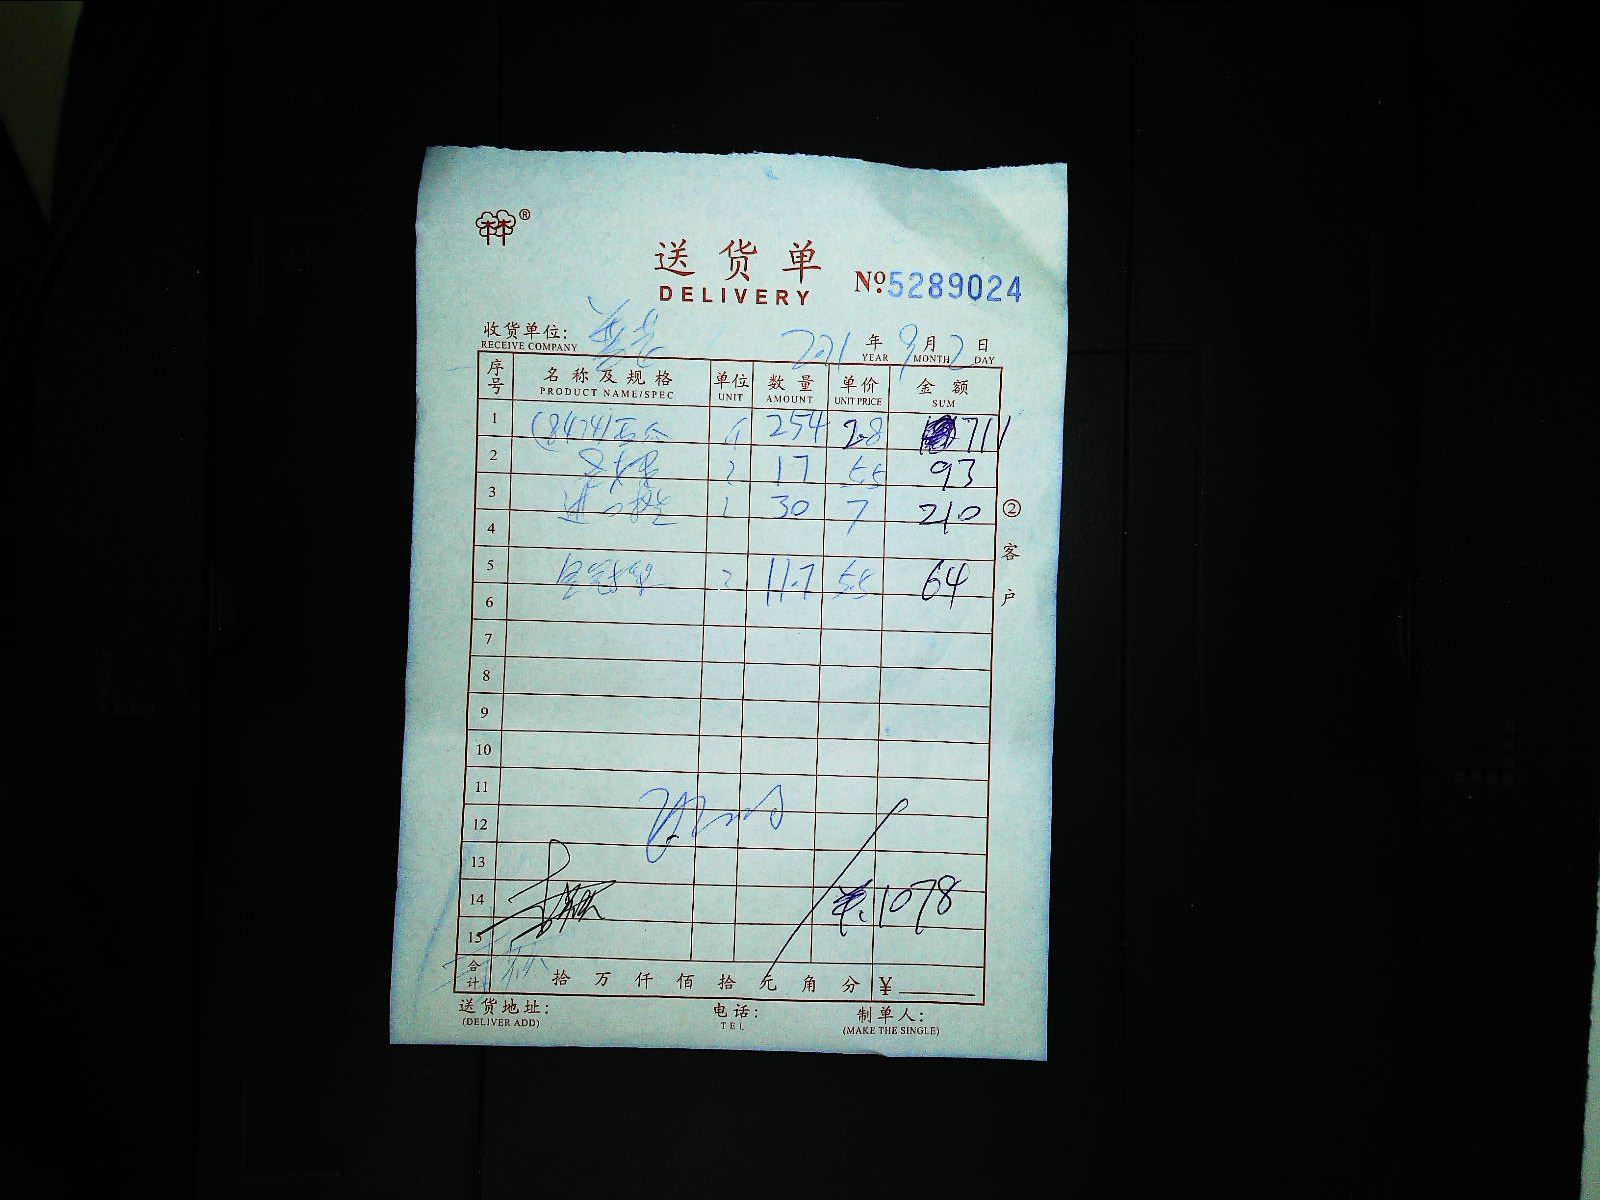 ®
送货单
DELIVERY
№5289024
收货单位: 年 9月2日
RECEIVE COMPANY YEAR MONTH DAY
序号 名称及规格 单位 数量 单价 金额
PRODUCT NAME/SPEC UNIT AMOUNT UNIT PRICE SUM
1 (8474) 254 2.8 711
2 17 5.5 93
3 30 7 210
4
5 11.7 5.5 64
6
7
8
9
10
11
12
13
14 1078
15
合计 拾 万 仟 佰 拾 元 角 分 ¥
送货地址: 电话: 制单人:
(DELIVER ADD) TEL (MAKE THE SINGLE)
②客户